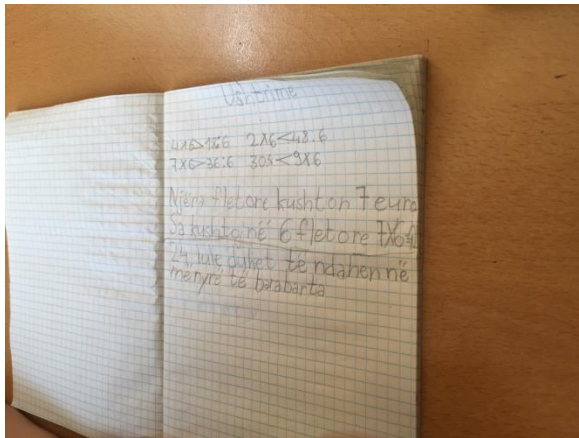 Ushtrime
4x6>18:6 2x6<48.6
7x6>36:6 30:<9x6
Njëra fletore kushton 7 euro
Sa kushtojnë 6 fletore 7x6
24 lule duhet të ndahen në
mënyrë të barabarta